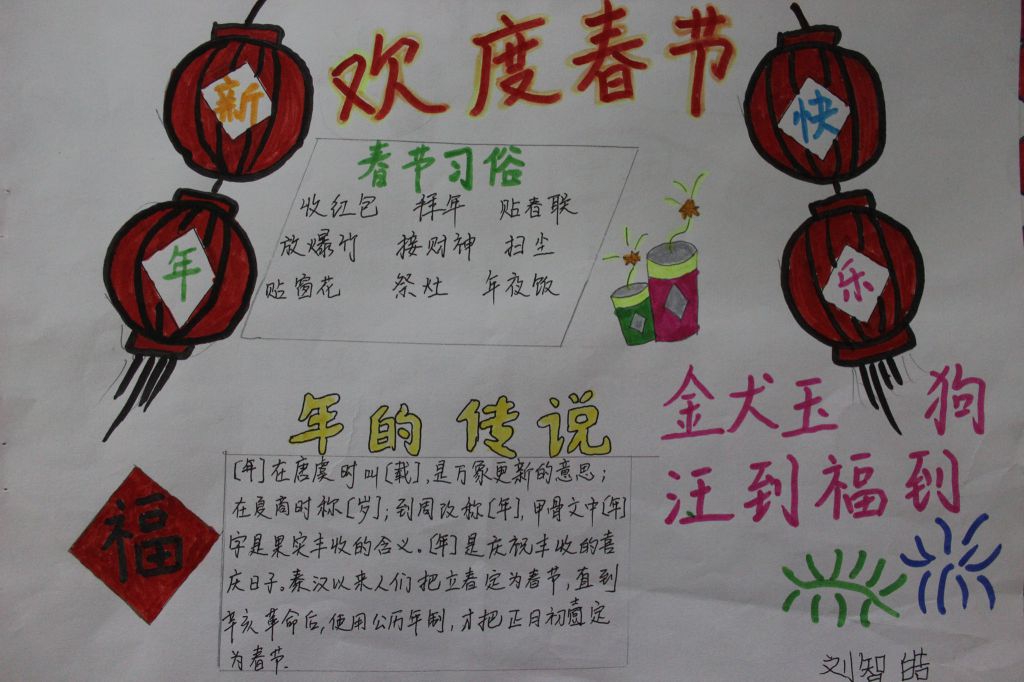 欢度春节
新
年
快
乐
春节习俗
收红包 拜年 贴春联
放爆竹 接财神 扫尘
贴窗花 祭灶 年夜饭
年的传说
[年]在唐虞时叫[载],是万象更新的意思;
在夏商时称[岁];到周改称[年],甲骨文中[年]
字是果实丰收的含义.[年]是庆祝丰收的喜
庆日子。秦汉以来人们把立春定为春节,直到
辛亥革命后,使用公历年制,才把正月初壹定
为春节.
福
金犬玉 狗
汪到福到
刘智皓